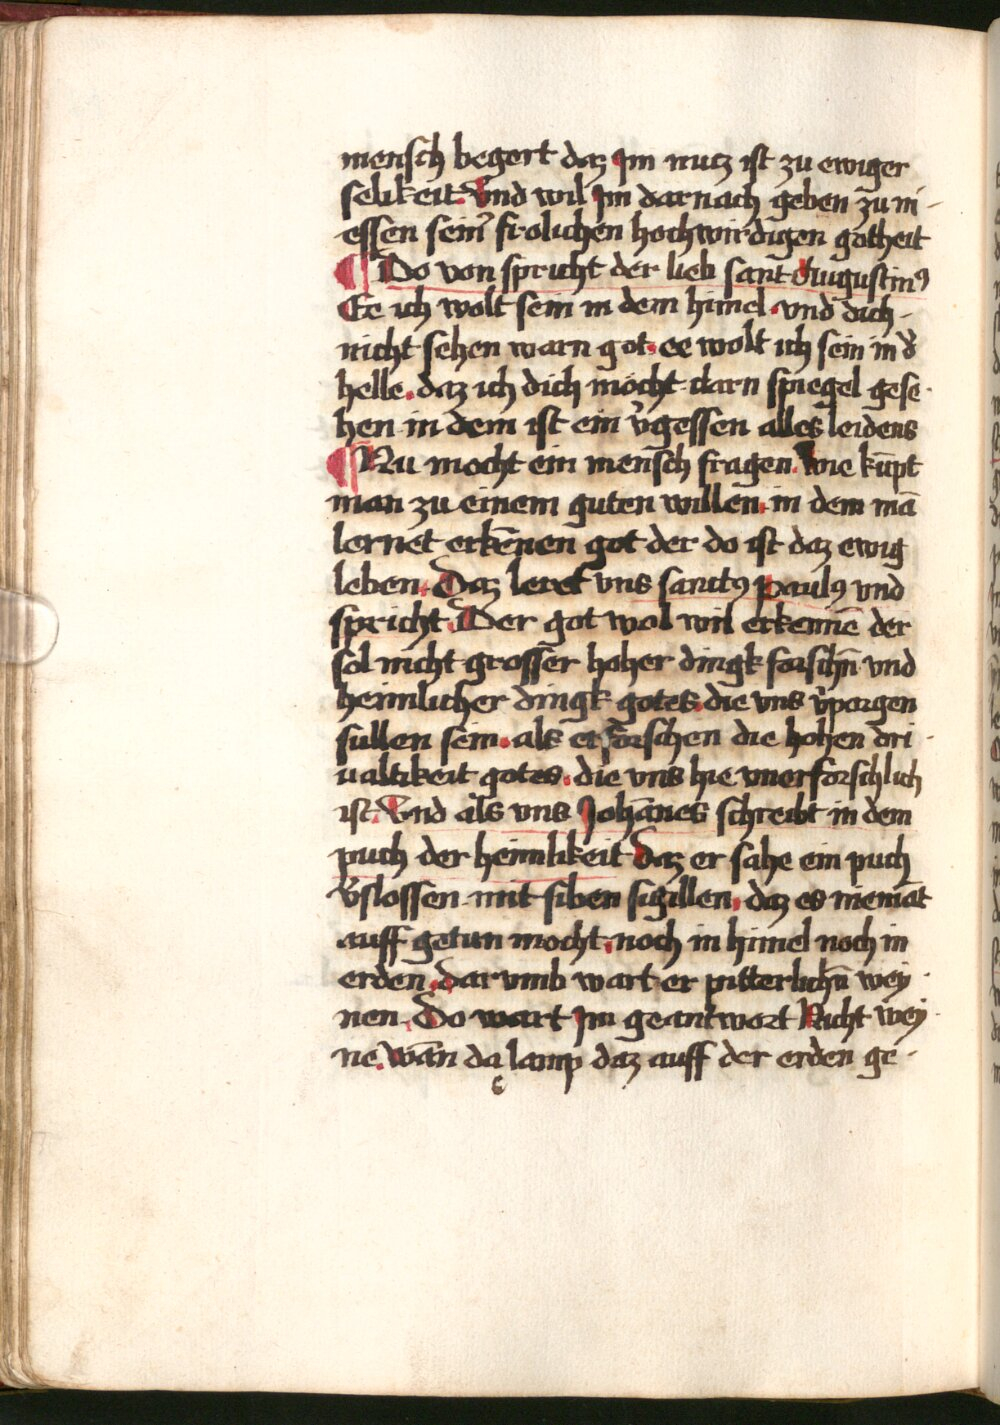 mensch begert daz Im nutz ist zu ewiger
selikeit. Vnd wil Im darnach geben zu ni-
essen seinr̄ frolichen hochwirdigen gotheit
¶ Do von spricht der lieb sant Augustinꝰ
Ee ich wolt sein in dem himel. vnd dich
nicht sehen warn got. ee wolt ich sein in d̄
helle. daz ich dich möcht darn spiegel gese-
hen in dem ist ein v̄gessen alles leidens
¶ Nu mocht ein mensch fragen. Wie kūpt
man zu einem guten willen. in dem mā
lernet erkēnen got der do ist daz ewig
leben. Daz leret vns sanctꝰ paulꝰ vnd
spricht. Der got wol wil erkennē der
sol nicht grosser hoher dingk forschn̄ vnd
heimlicher dingk gotes. die vns v̄porgen
sullen sein. als erforschen die hohen dri-
ualtikeit gotes. die vns hie vnerforschlich
ist. Vnd als vns Johānes schreibt in dem
puch der heimlikeit Daz er sahe ein puch
v̄slossen mit siben sigillen. daz es niemāt
auff getun mocht. noch in himel noch in
erden. darvmb wart er pitterlichn̄ wey-
nen. Do wart Im geantwort Nicht wey-
ne. wān da lamp daz auff der erden ge-